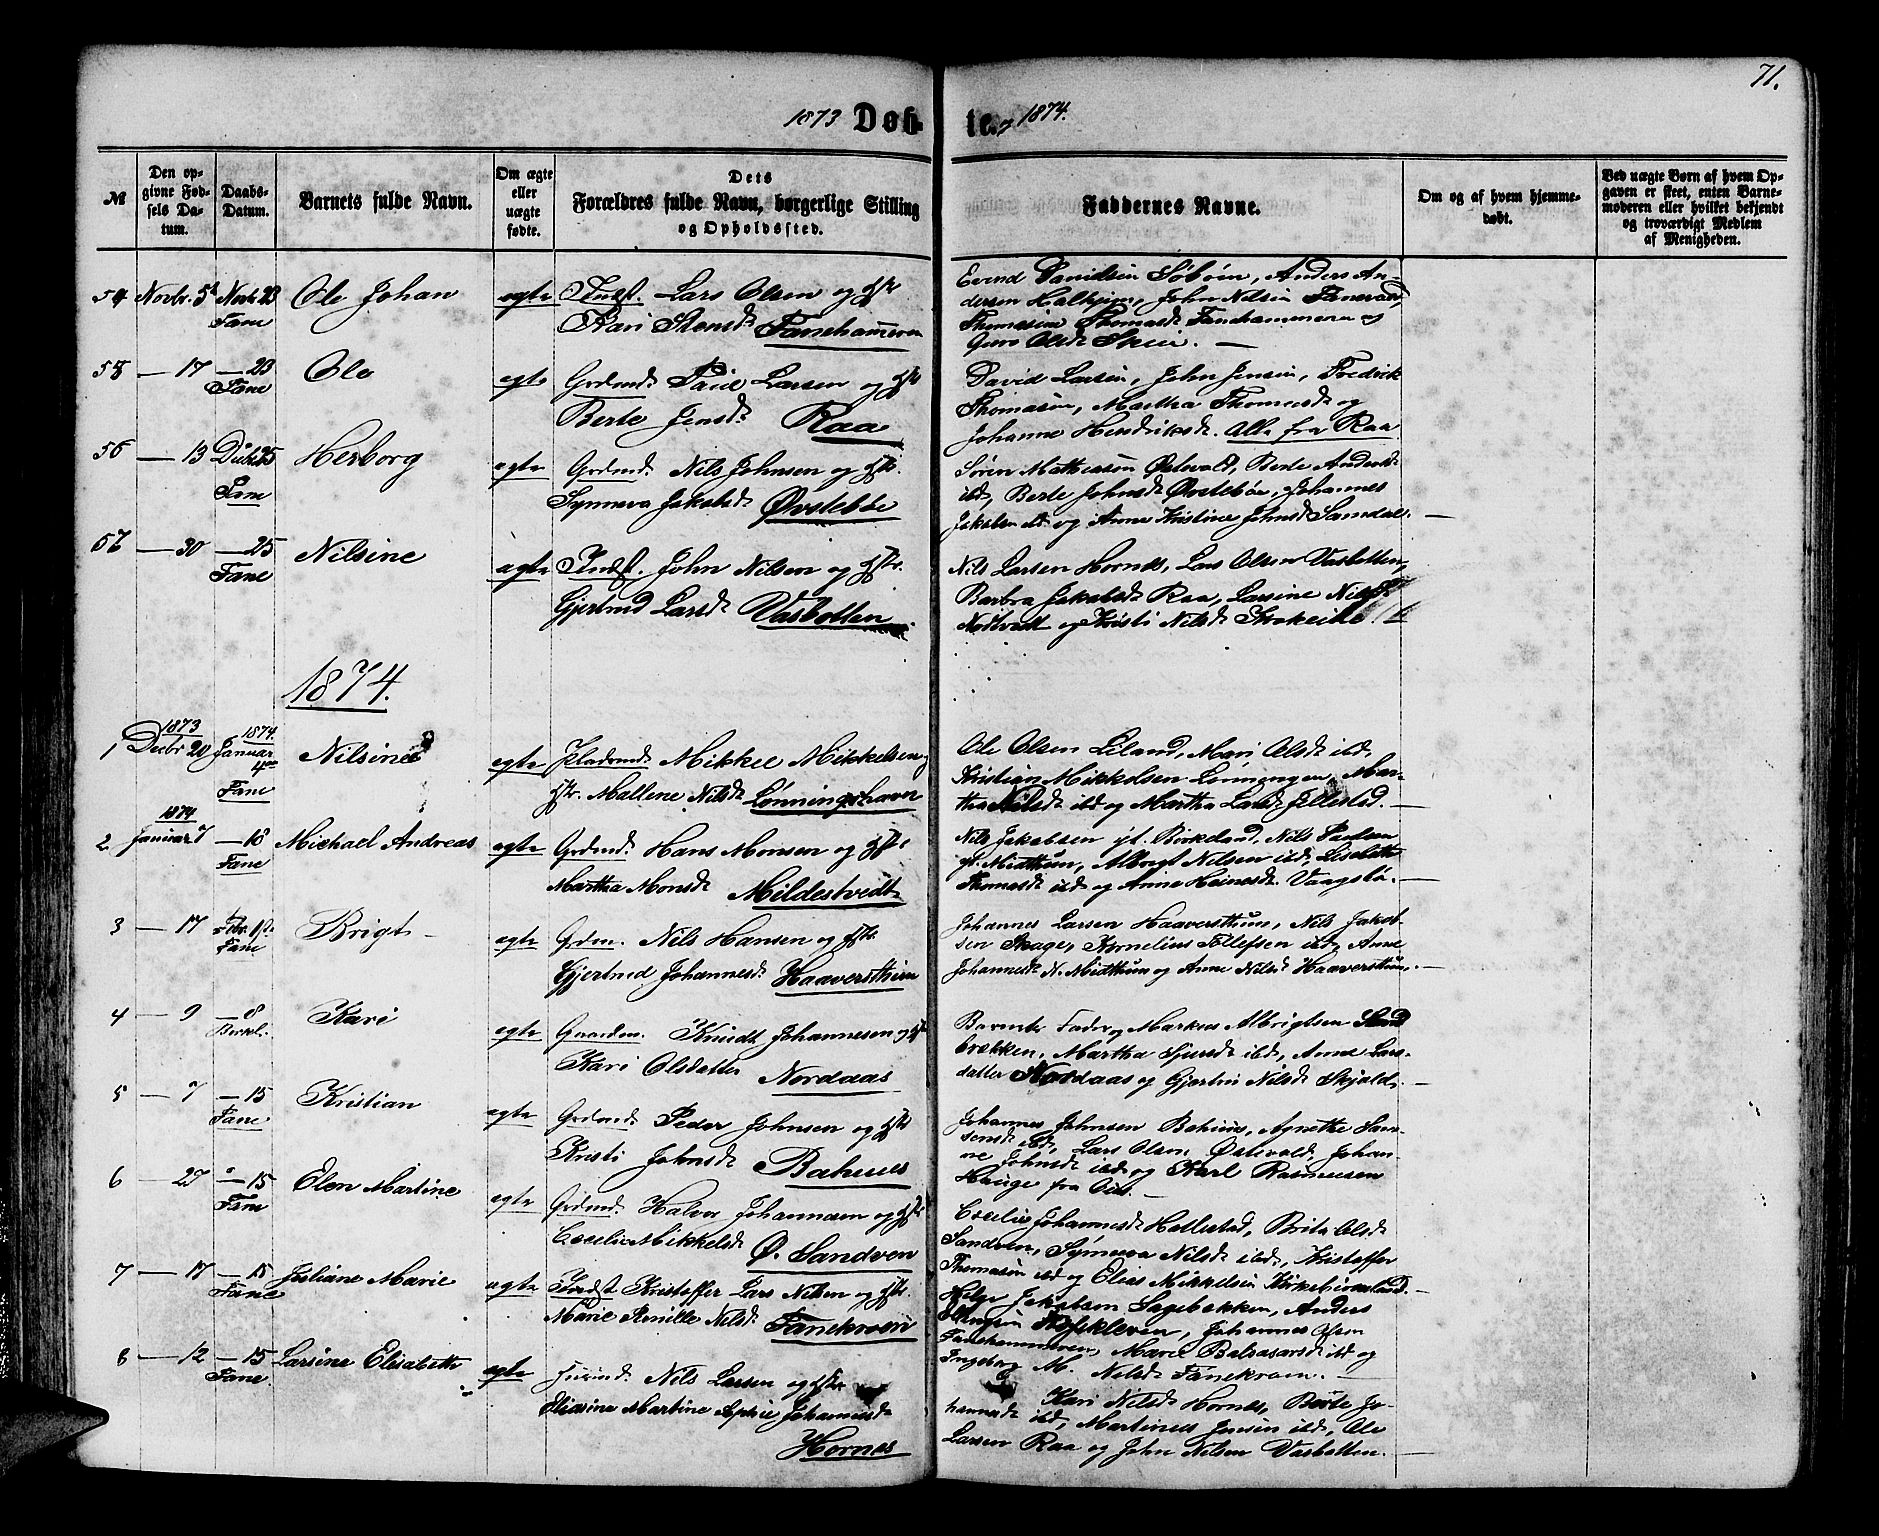 71.
1873 Døb- te. 1874.
№
Den op-
givne Fød-
sels Da-
tum.
Daabs-
Datum.
Barnets fulde Navn.
Om ægte
eller
uægte
fødte.
Dets
Forældres fulde Navn, borgerlige Stilling
og Opholdssted.
Faddernes Navne.
Om og af hvem hjemme-
døbt.
Ved uægte Børn af hvem Op-
gaven er skeet, enten Barne-
moderen eller hvilket bekjendt
og troværdigt Medlem
af Menigheden.
54 Novbr. 5te Novbr. 23 Ole Johan ægte Indst. Lars Olsen og Hstr
Fane Kari Stensdt Fanehammeren
Eivind Davidsen Søbøen, Anders An-
dersen Halhjem, John Nilsen Fanevad,
Thomasine Thomasdt Fanehammeren og
Guro Olsdt Skeie. —
58 — 17 — 23 Ole ægte Grdmd. Larsen og Hstr
Fane Berte Jensdt Raa
David Larsen, John Jensen, Fredrik
Thomasen, Martha Thomasdt og
Johanne Hendriksdt. Alle fra Raa
56 — 13 Decbr. 25 Herborg ægte Grdmd. Nils Johnsen og Hstr.
Fane Synneva Jakobsdt Øvstebøe
Søren Mathiason Østevold, Berte Andersdt
ibd, Berte Johnsdt Øvstebøe, Johannes
Jakobsen ibd og Anne Kristine Johnsdt Samdal. —
57 — 30 — 25 Nilsine ægte Indst. John Nilsen og Hstr.
Fane Gjertrud Larsdt Vasbotten
Nils Larsen Hornes, Lars Olsen Vasbotten,
Barbra Jakobsdt Raa, Larsine Nilsdt
Nødtvedt og Kristi Nilsdt Krokeide
1874.
1873 1874.
1, Decbr 20 Januar Nilsine ægte Pladsmd. Mikkel Mikkelsen og
4de Hstr. Mallene Nilsdt Lønningshavn
Fane
Ole Olsen Liland, Mari Olsdt ibd,
Kristian Mikkelsen Lønningen, Mar-
tha Nilsdt ibd og Martha Larsdt Jellestad. —
1874
2. Januar 7 — 18 Michael Andreas ægte Grdmd. Hans Monsen og Hstr
Fane Martha Monsdt Mildestvedt
Nils Jakobsen yt. Birkeland, Nils Paulsen
yt. Midthun, Albregt Nilsen ibd, Lisabeth
Thomasdt ibd og Anne Heinesdt. Vaagsbø. —
3 — 17 Febr. 1ste Brigt — ægte Grdm. Nils Hansen og Hstr.
Fane Gjertrud Johannesdt Haaversthun
Johannes Larsen Haaversthun, Nils Jakob-
sen Skage, Kornelius Tollefsen ibd, Anne
Johannesdt N. Midthun og Anne Nilsdt Haaversthun. —
4 — 9 — 8 Kari ægte Gaardm. Knudt Johannesen og Hstr
Birkel. Kari Olsdatter Nordaas
Barnets Fader og Markus Albrigtsen Sand-
brekken, Martha Sjursdt ibd, Anne Lars-
datter Nordaas og Gjertrud Nilsdt Skjold. —
5 — 7 — 15 Kristian ægte Grdmd. Peder Johnsen og Hstr
Fane Kristi Johnsdt Bahues
Johannes Johnsen Bahues, Agnethe Sam-
sensdt ibd, Lars Olsen Østevold, Johan-
ne Johnsdt ibd og Karl Rasmussen
Hauge fra Os. —
6 — 27 — 15 Elen Martine ægte Grdmd. Halvor Johannesen og Hstr
Fane Cecelie Mikkelsdt Ø. Sandven
Cecelie Johannesdt Hallestad, Brita Olsdt
Sandven, Synneva Nilsdt ibd, Kristoffer
Thomasen ibd og Elias Mikkelsen Kirkebirkeland. —
7 — 17 — 15 Juliane Marie ægte Indst Kristoffer Lars Nilsen og Hstr.
Fane Marie Pernille Nilsdt Fanekroen
Helge Jakobsen Sagebakken, Anders
Klepkleven, Johannes Olsen
Fanehammeren, Marie Balsasarsdt ibd og
Ingeborg M. Nilsdt Fanekroen. —
8 — 12 — 15 Larsine Elisabeth ægte Nils Larsen og Hstr
Fane. Martine Sophie Johannesdt
Hornes
Kari Nilsdt Hornes, Berte Jo-
hannesdt ibd, Martines Jensen ibd, Ole
Larsen Raa og John Nilsen Vasbotten. —